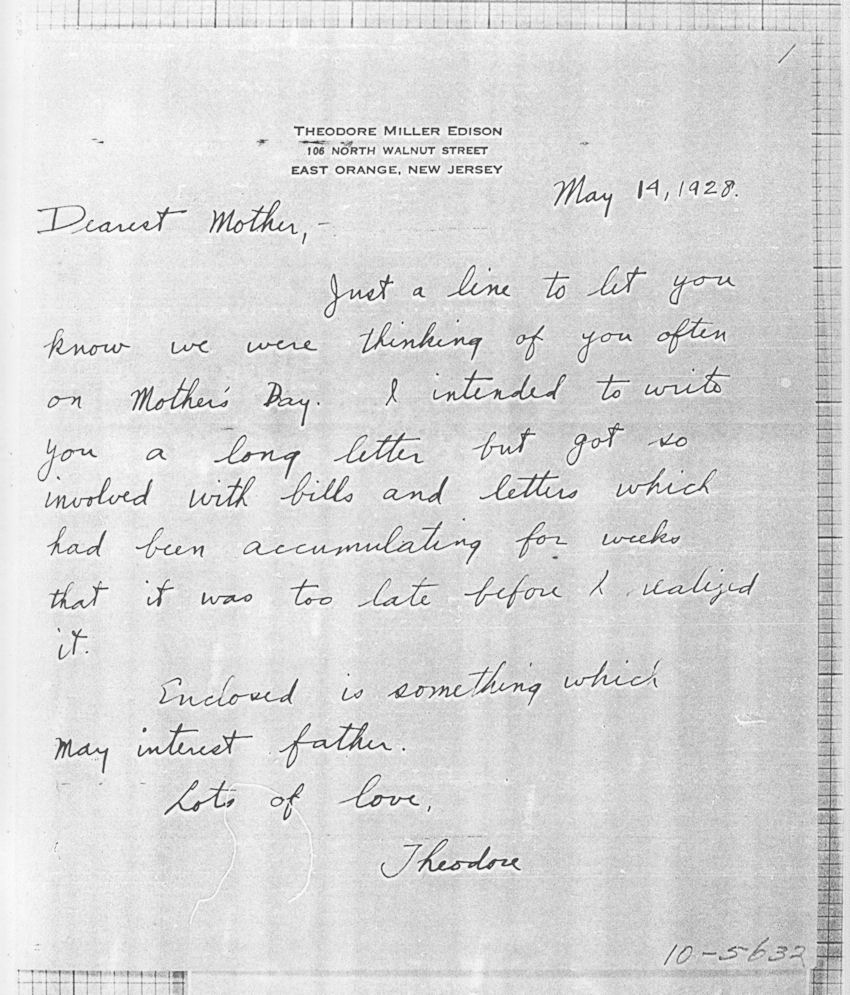 1
THEODORE MILLER EDISON
106 NORTH WALNUT STREET
EAST ORANGE, NEW JERSEY
May 14, 1928.
Dearest Mother,-
Just a line to let you
know we were thinking of you often
on Mother's Day. I intended to write
you a long letter but got so
involved with bills and letters which
had been accumulating for weeks
that it was too late before I realized
it.
Enclosed is something which
may interest father.
Lots of love,
Theodore
10-5632